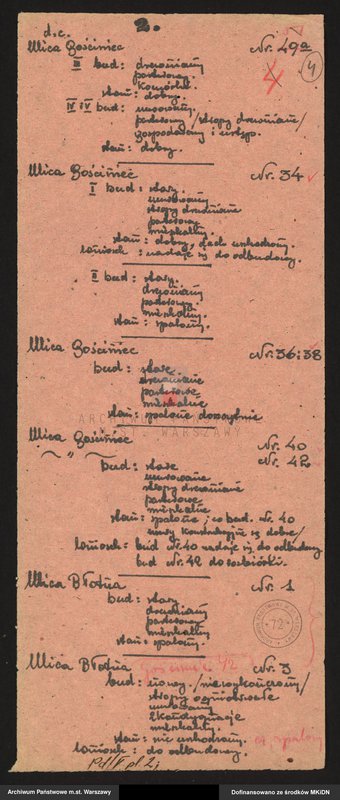 d.c. 2.
Ulica Gościniec Nr. 49a
III bud: drewniany 4 4
parterowy.
Komórki.
stan: dobry.
IV i V bud: murowany
parterowy /stropy drewniane/
gospodarczy i ustęp.
stan: dobry.
Ulica Gościniec Nr. 34
I bud: stary.
murowany
stropy drewniane
parterowy
mieszkalny.
stan: dobry, dach uszkodzony.
wniosek: nadaje się do odbudowy.
II bud: stary.
drewniany
parterowy.
mieszkalny.
stan: spalony.
Ulica Gościniec Nr. 36 i 38
bud: stare
drewniane
parterowe
mieszkalne
stan: spalone doszczętnie
ARCHIWUM
M.ST. WARSZAWY
Ulica Gościniec Nr. 40
" Nr. 42
bud: stare
murowane
stropy drewniane
parterowe
mieszkalne
stan: spalone i co bud. Nr. 40
mury konstrukcyjne są dobre/
wniosek: bud Nr. 40 nadaje się do odbudowy
bud Nr. 42 do rozbiórki.
Ulica Błotna Nr. 1
bud: stary
drewniany
parterowy
mieszkalny
stan: spalony.
72
Ulica Błotna Gościniec Nr. 3
bud: nowy. /niewykończony/
stropy ogniotrwałe
murowany
2 kondygnacje
mieszkalny.
stan: nie uszkodzony. spalony
wniosek: do odbudowy.
Archiwum Państwowe m.st. Warszawy Dofinansowano ze środków MKiDN